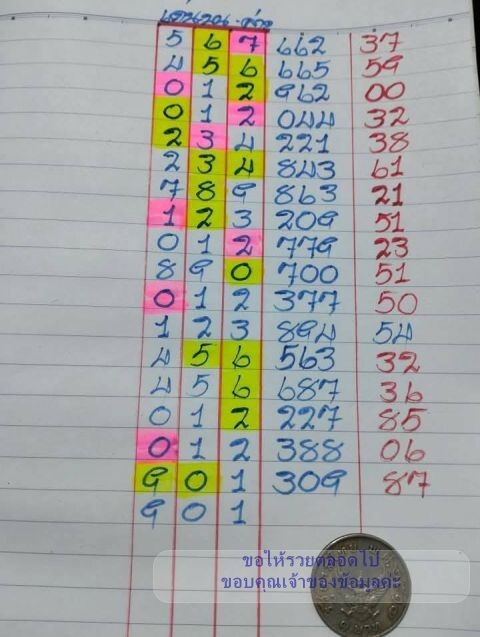 5 6 7 662 37
4 5 6 665 59
0 1 2 962 00
0 1 2 044 32
2 3 4 221 38
2 3 4 843 61
7 8 9 863 21
1 2 3 209 51
0 1 2 779 23
8 9 0 700 51
0 1 2 377 50
1 2 3 894 54
4 5 6 563 32
4 5 6 687 36
0 1 2 227 85
0 1 2 388 06
9 0 1 309 87
9 0 1
ขอให้รวยตลอดไป
ขอบคุณเจ้าของข้อมูลค่ะ